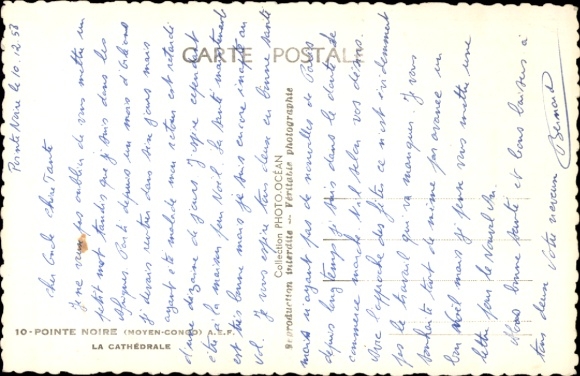 CARTE POSTALE
Pointe Noire le 10.12.58
Cher oncle chère Tante
Je ne veux pas oublier de vous mettre un
petit mot tandis que je suis dans les
Afriques. Parti depuis un mois d'
je devais rentrer dans six jours mais
ayant été malade mon retour est retardé
d'une dizaine de jours j'espère cependant
être à la maison pour Noël. La santé maintenant
est très bonne mais je suis encore inapte au
vol. Je vous espère tous deux en bonne santé
mais n'ayant pas de nouvelles de
depuis longtemps je suis dans le doute. Le
commerce marche t'il selon vos désirs.
Avec l'approche des fêtes ce n'est évidemment
pas le travail qui va manquer. Je vous
souhaite tout de même par avance un
bon Noël mais je pense vous mettre une
lettre pour le Nouvel An.
bonne santé et bons baisers à
tous deux votre neveu
Bernard
Collection PHOTO.OCÉAN
Reproduction interdite — Véritable photographie
10 - POINTE NOIRE (MOYEN-CONGO) A.E.F.
LA CATHÉDRALE